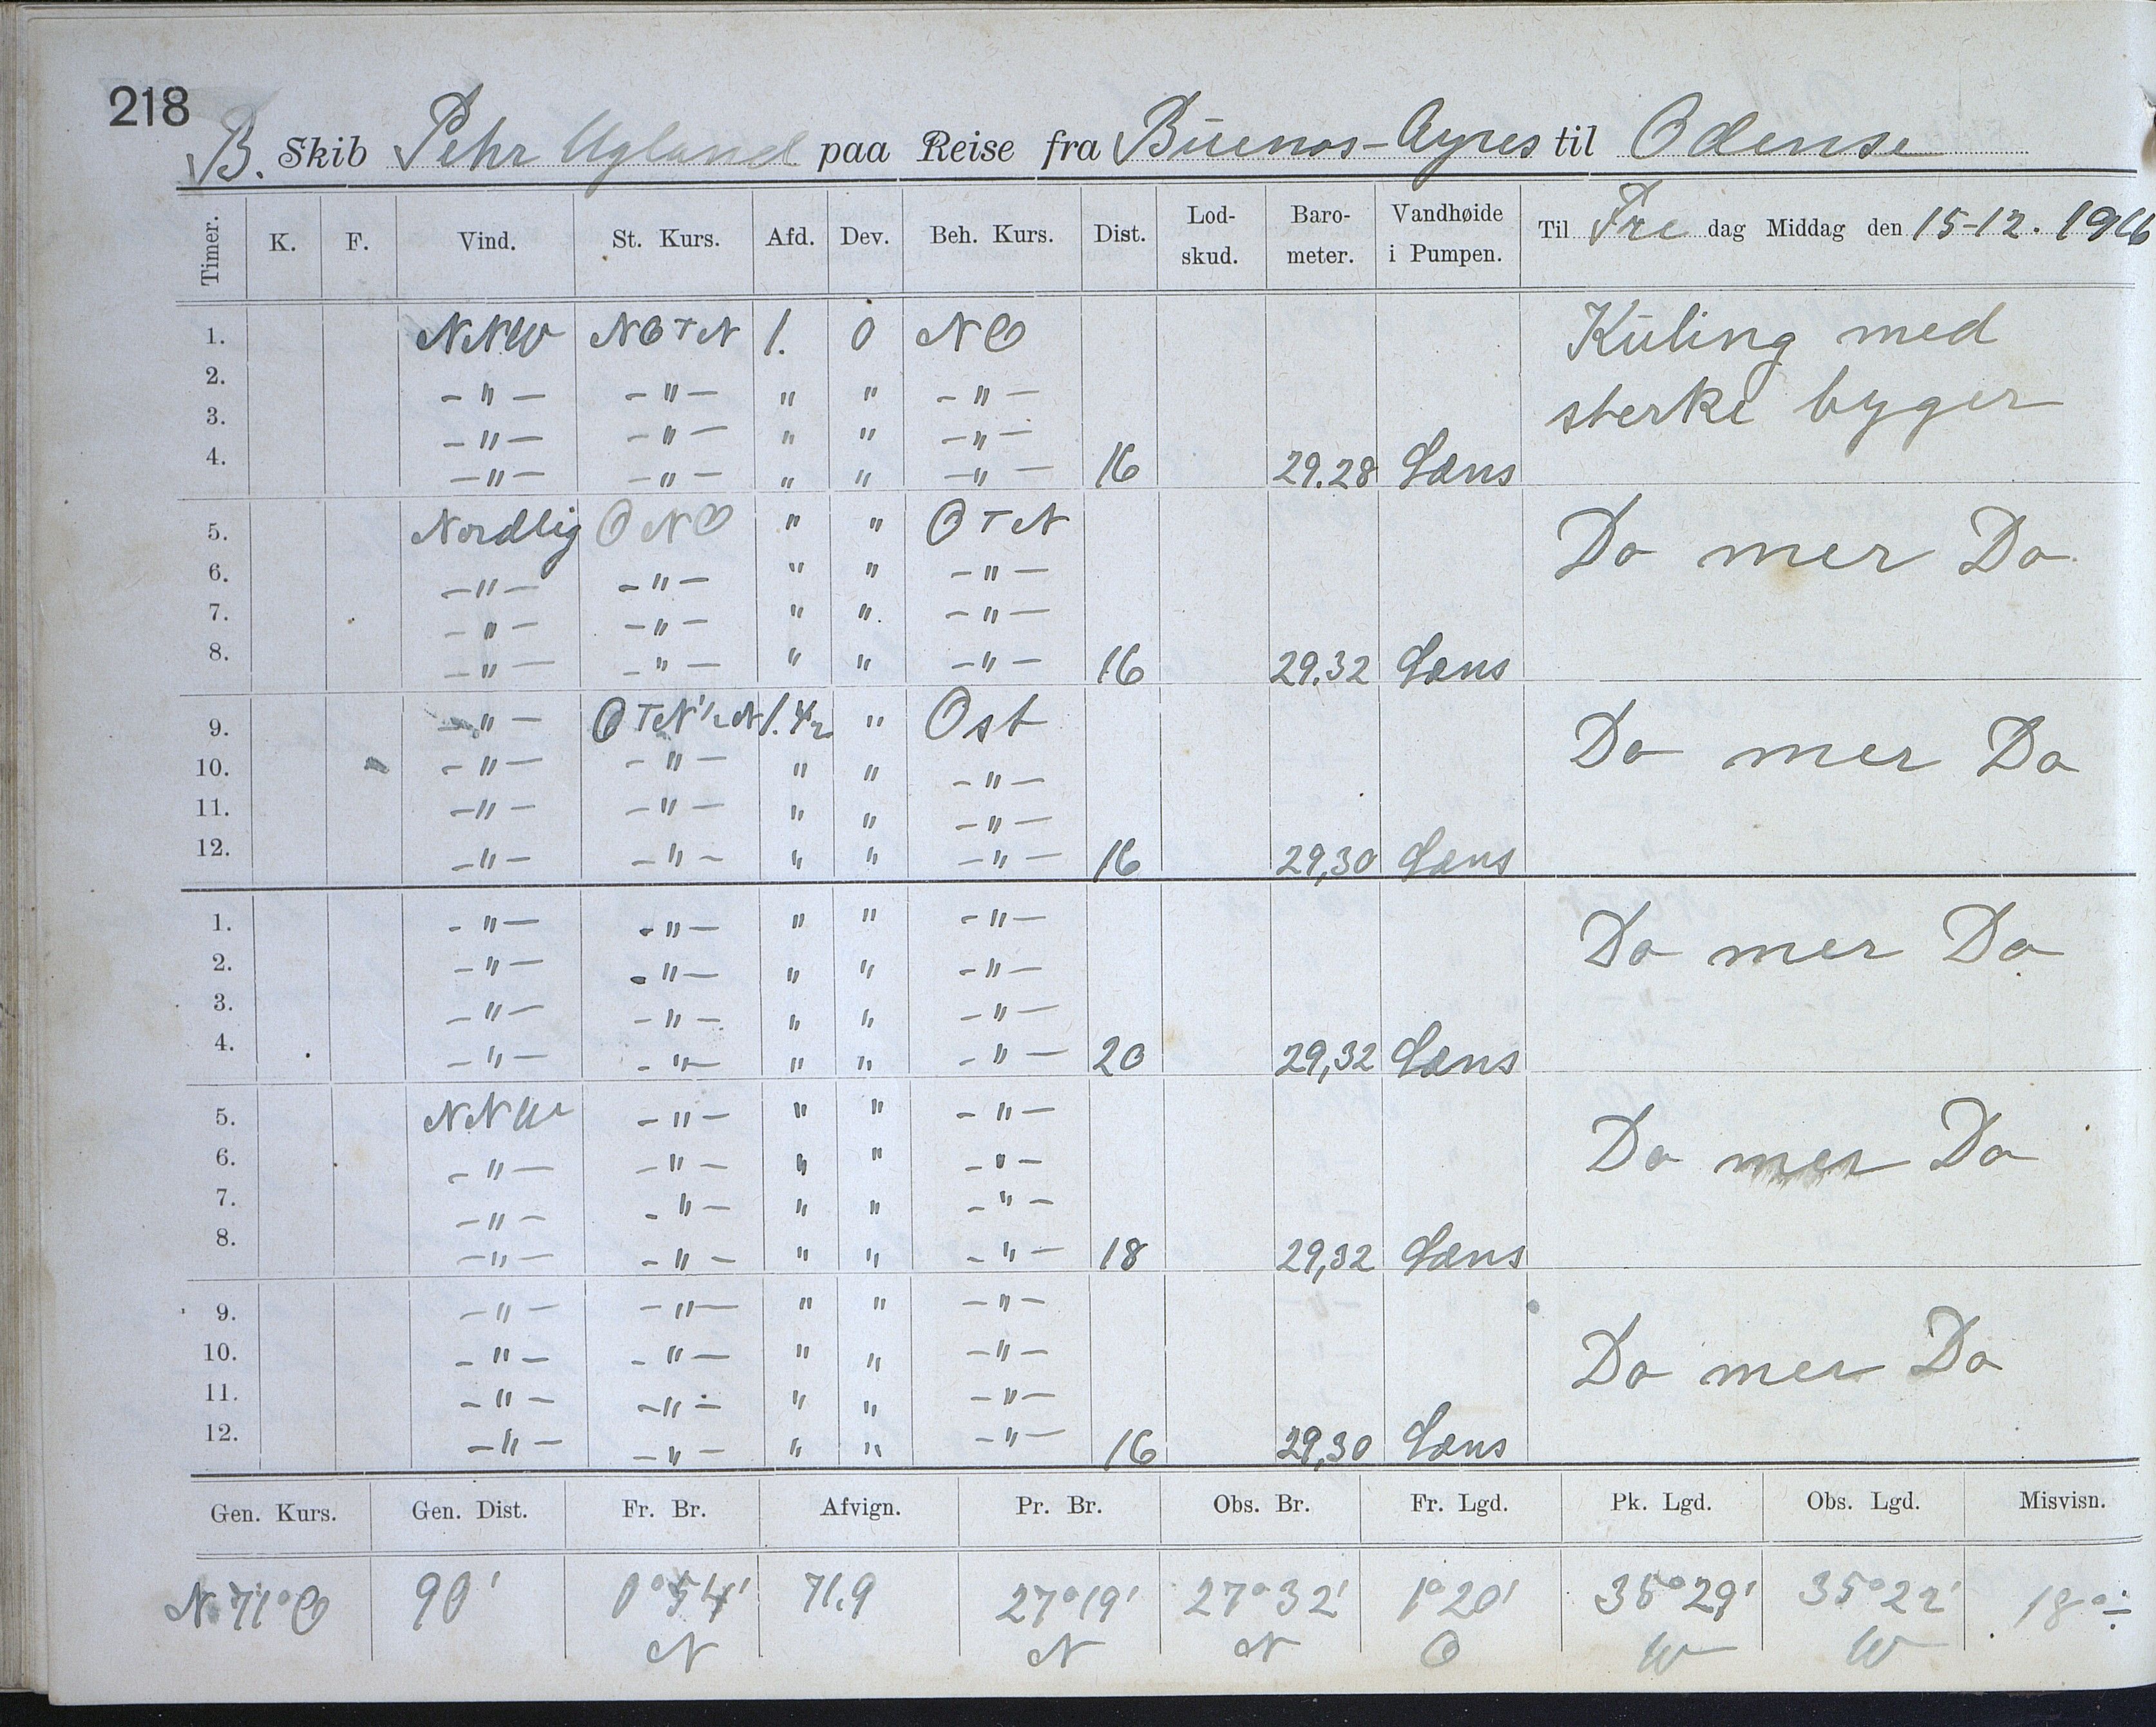 218
B. Skib Pehr Ugland paa Reise fra Buenos-Ayres til Odense
Timer. K. F. Vind. St. Kurs. Afd. Dev. Beh. Kurs. Dist. Lod-skud. Baro-meter. Vandhøide i Pumpen. Til Fre dag Middag den 15-12. 1916
1. NNW NOTN 1. 0 NO Kuling med
2. -"- -"- " " -"-
3. -"- -"- " " -"- sterke byger
4. -"- -"- " " -"- 16 29.28 Læns
5. Nordlig ONO " " OTN Do mer Do
6. -"- -"- " " -"-
7. -"- -"- " " -"-
8. -"- -"- " " -"- 16 29.32 Læns
9. -"- OTN½N 1.½ " Ost Do mer Do
10. -"- -"- " " -"-
11. -"- -"- " " -"-
12. -"- -"- " " -"- 16 29,30 Læns
1. -"- -"- " " -"- Do mer Do
2. -"- -"- " " -"-
3. -"- -"- " " -"-
4. -"- -"- " " -"- 20 29,32 Læns
5. NNW -"- " " -"- Do mer Do
6. -"- -"- " " -"-
7. -"- -"- " " -"-
8. -"- -"- " " -"- 18 29,32 Læns
9. -"- -"- " " -"-
10. -"- -"- " " -"- Do mer Do
11. -"- -"- " " -"-
12. -"- -"- " " -"- 16 29,30 Læns
Gen. Kurs. Gen. Dist. Fr. Br. Afvign. Pr. Br. Obs. Br. Fr. Lgd. Pk. Lgd. Obs. Lgd. Misvisn.
N 71° O 90' 0°54' 71.9 27°19' 27°32' 1°20' 35°29' 35°22' 18°÷
N N N O W W